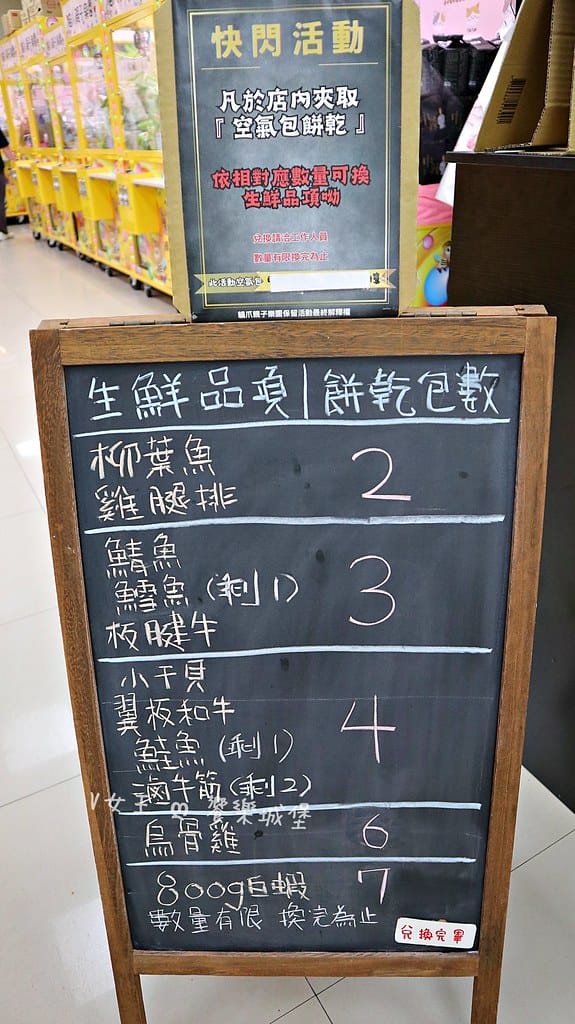 快閃活動
凡於店內夾取
『空氣包餅乾』
依相對應數量可換
生鮮品項呦
兌換請洽工作人員
數量有限換完為止
此活動空氣包
貓爪親子樂園保留活動最終解釋權
生鮮品項|餅乾包數
柳葉魚
雞腿排
2
鯖魚
鱈魚(剩1)
板腱牛
3
小干貝
翼板和牛
鮭魚(剩1)
滷牛筋(剩2)
4
烏骨雞 6
800g白蝦 7
數量有限 換完為止
兌換完畢
饗樂城堡